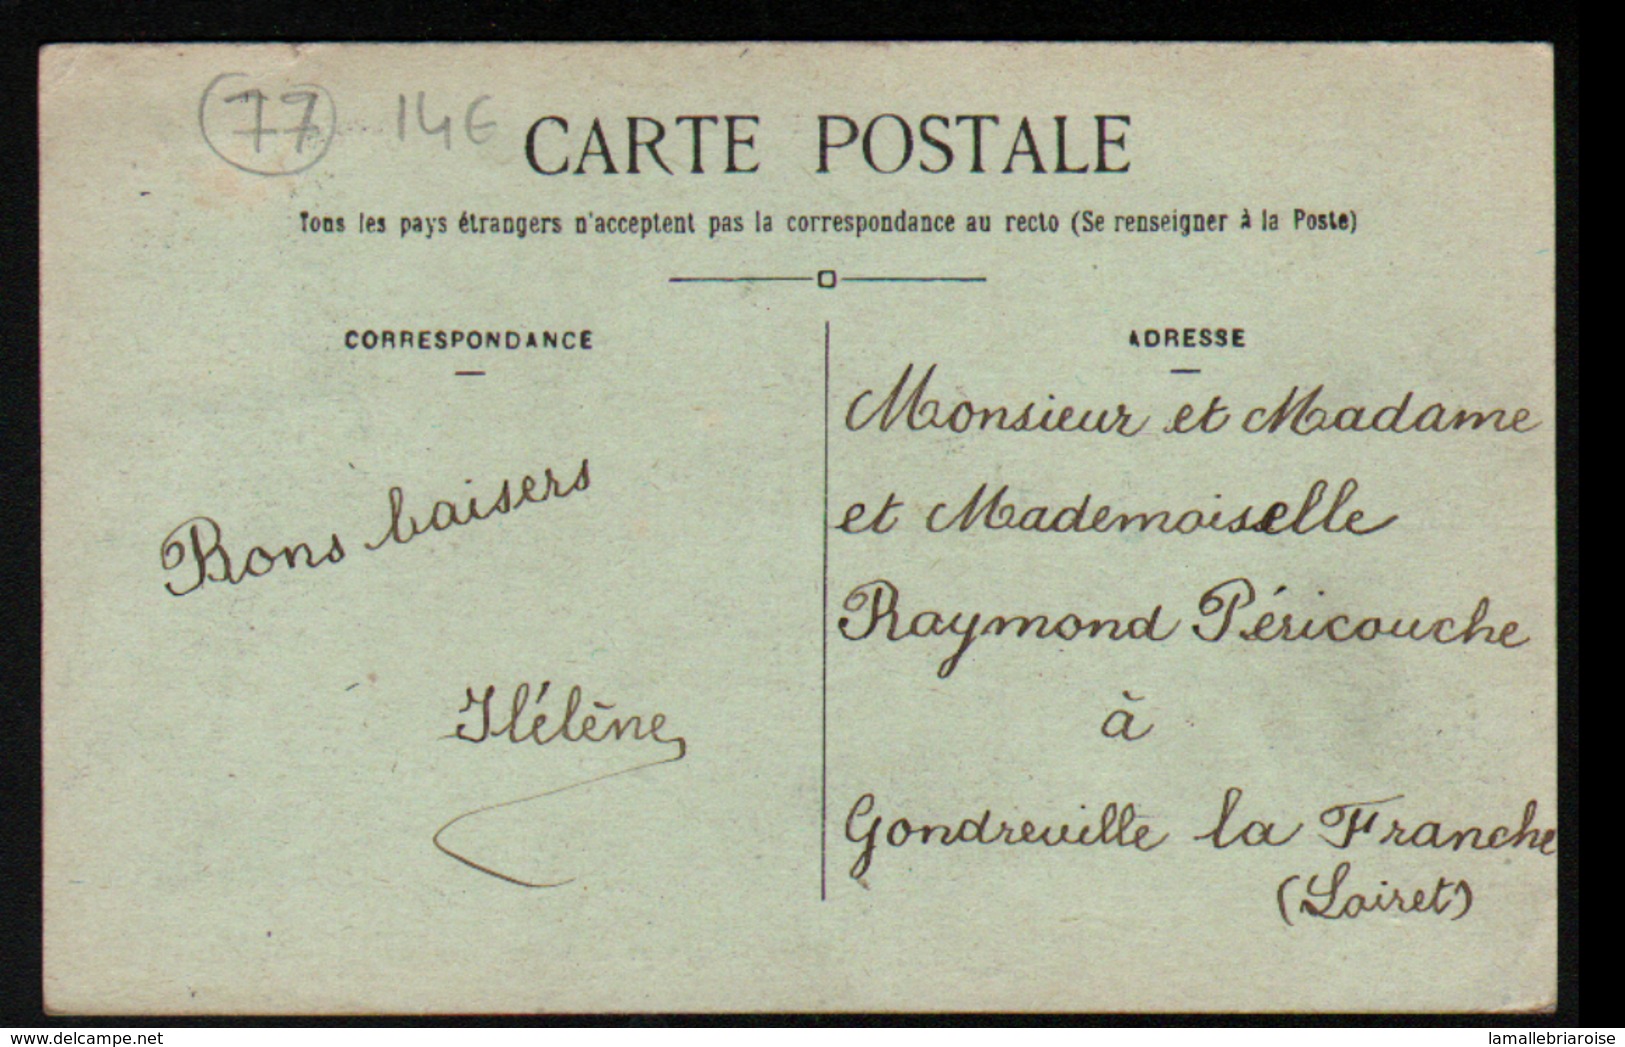 77 14€
CARTE POSTALE
Tous les pays étrangers n'acceptent pas la correspondance au recto (Se renseigner à la Poste)
CORRESPONDANCE
Bons baisers
Hélène
ADRESSE
Monsieur et Madame
et Mademoiselle
Raymond Péricouche
à
Gondreville la Franche
(Loiret)
© www.delcampe.net
lamallebriaroise